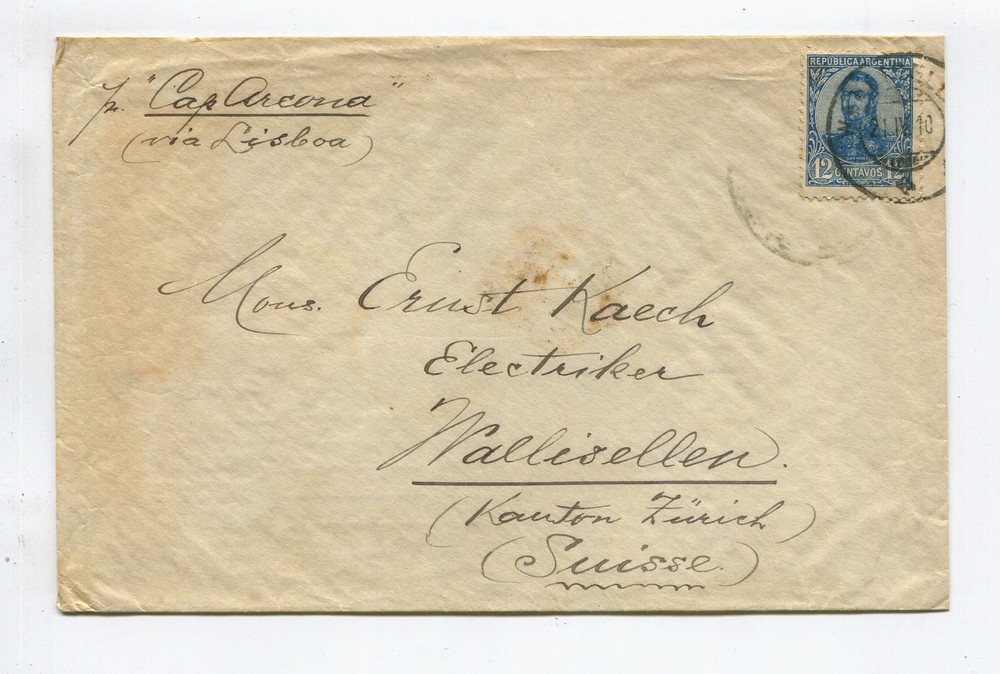 pr. "Cap Arcona"
(via Lisboa)
REPÚBLICA ARGENTINA
12 CENTAVOS 12
Mons. Ernst Kaech
Electriker
Wallisellen.
(Kanton Zürich)
(Suisse.)